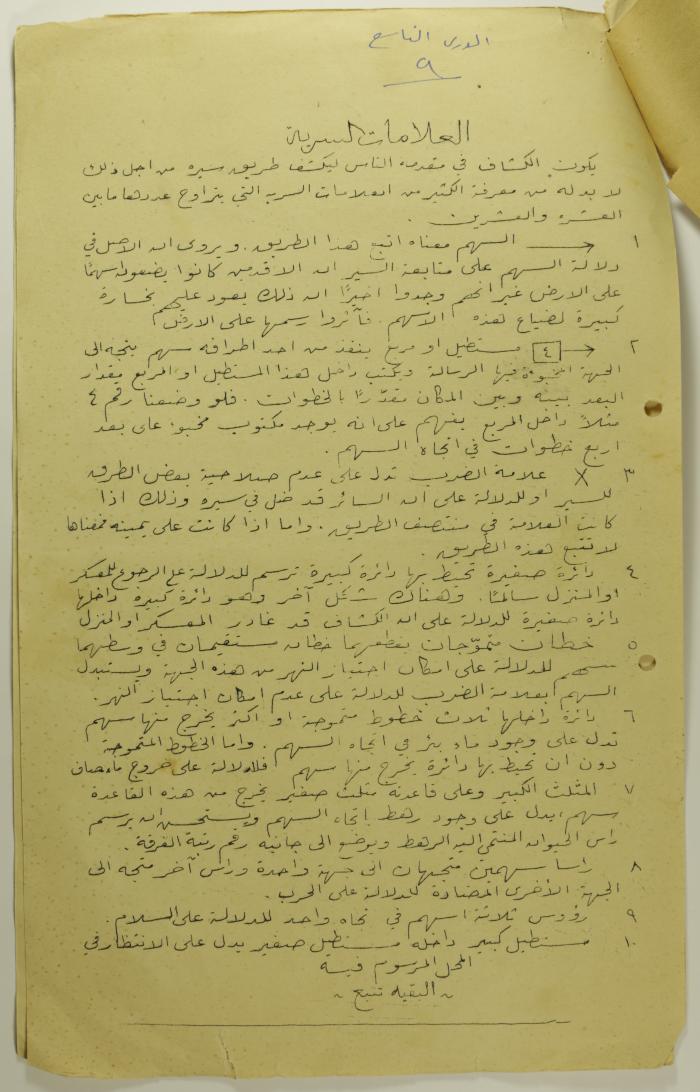 الدرس التاسع
٩
العلامات السرية
يكون الكشاف في مقدمة الناس ليكشف طريق سيره من اجل ذلك
لا بد له من معرفة الكثير من العلامات السرية التي يتراوح عددها ما بين
العشرة والعشرين .
١ → السهم معناه اتبع هذا الطريق . ويروى ان الاصل في
دلالة السهم على متابعة السير ان الاقدمين كانوا يضعونه سهمًا
على الارض غير انهم وجدوا اخيرًا ان ذلك يعود عليهم بخسارة
كبيرة لضياع هذه الاسهم . فآثروا رسمها على الارض
٢ [٤]→ مستطيل او مربع ينفذ من احد اطرافه سهم يتجه الى
الجهة المخبوءة فيها الرسالة ويكتب داخل هذا المستطيل او المربع مقدار
البعد بينه وبين المكان مقدّرًا بالخطوات . فلو وضعنا رقم ٤
مثلاً داخل المربع يفهم على انه يوجد مكتوب مخبوء على بعد
اربع خطوات في اتجاه السهم .
٣ X علامة الضرب تدل على عدم صلاحية بعض الطرق
للسير او للدلالة على ان السائر قد ضل في سيره وذلك اذا
كانت العلامة في منتصف الطريق . واما اذا كانت على يمينه فمعناها
لا تتبع هذه الطريق .
٤ دائرة صغيرة تحيط بها دائرة كبيرة ترسم للدلالة على الرجوع للمعسكر
او المنزل سالمًا . وهناك شكل آخر وهو دائرة كبيرة داخلها
دائرة صغيرة للدلالة على ان الكشاف قد غادر المعسكر او المنزل
٥ خطان متموّجان يقطعهما خطان مستقيمان في وسطهما
سهم للدلالة على امكان اجتياز النهر من هذه الجهة ويستبدل
السهم بعلامة الضرب للدلالة على عدم امكان اجتياز النهر .
٦ دائرة داخلها ثلاث خطوط متموجة او اكثر يخرج منها سهم
تدل على وجود ماء بئر في اتجاه السهم . واما الخطوط المتموجة
دون ان تحيط بها دائرة يخرج منها سهم فللدلالة على خروج ماء صاف
٧ المثلث الكبير وعلى قاعدته مثلث صغير يخرج من هذه القاعدة
سهم يدل على وجود رهط باتجاه السهم ويستحسن ان يرسم
راس الحيوان المنتمي اليه الرهط ويوضع الى جانبه رقم رتبة الفرقة .
٨ راسا سهمين متجهان الى جهة واحدة وراس آخر متجه الى
الجهة الأخرى المضادة للدلالة على الحرب .
٩ رؤوس ثلاثة اسهم في تجاه واحد للدلالة على السلام .
١٠ مستطيل كبير داخله مستطيل صغير يدل على الانتظار في
المحل المرسوم فيه
~ البقية تتبع ~